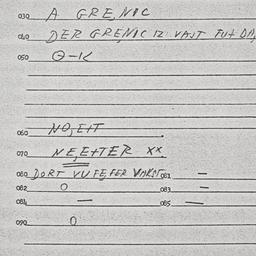 030 A GRE,NIC
040 DER GRE,NIC IZ VAJT FUT DA,
050 O-K
060 NO,EtT
070 NE,EtTER XX
080 DORT VU FE,FER 081 —
082 O 083 —
084 — 085 —
090 O